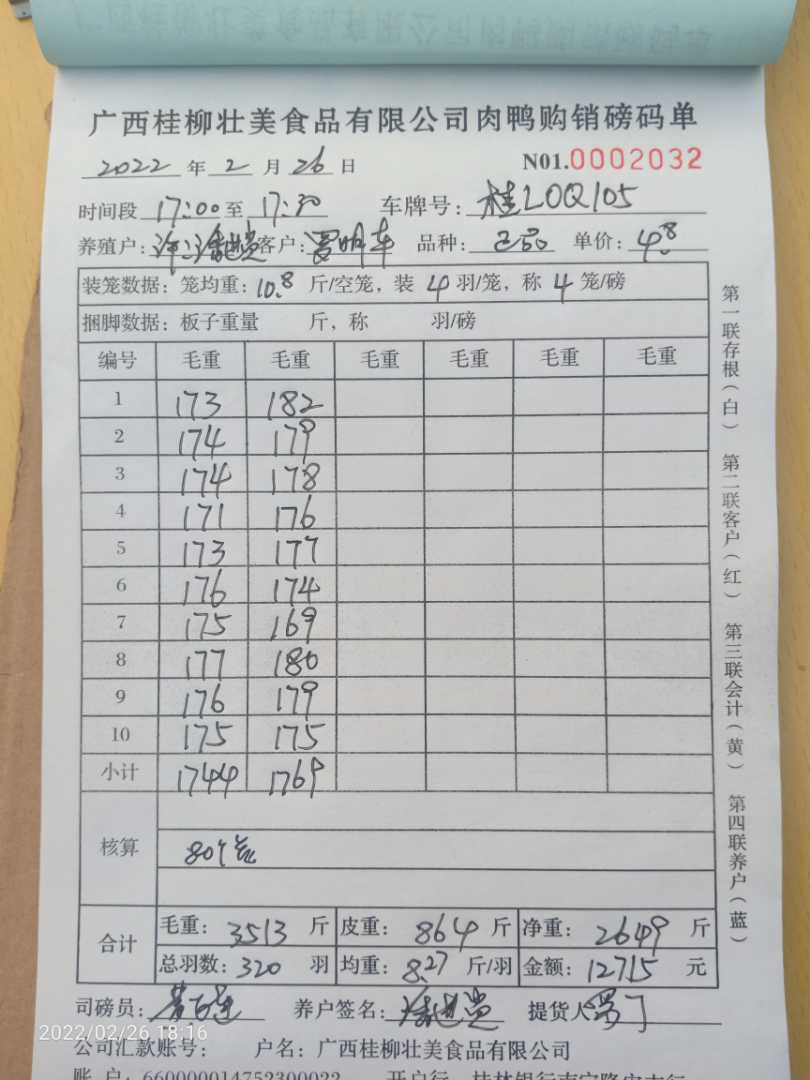 广西桂柳壮美食品有限公司肉鸭购销磅码单
2022 年 2 月 26 日 N01.0002032
时间段 17:00 至 17:30 车牌号: 桂L0Q105
养殖户: 客户: 品种: 单价: 4.8
装笼数据: 笼均重: 10.8 斤/空笼, 装 4 羽/笼, 称 4 笼/磅
捆脚数据: 板子重量 斤, 称 羽/磅
编号 毛重 毛重 毛重 毛重 毛重 毛重
1 173 182
2 174 179
3 174 178
4 171 176
5 173 177
6 176 174
7 175 169
8 177 180
9 176 179
10 175 175
小计 1744 1769
核算 80个笼
合计 毛重: 3513 斤 皮重: 864 斤 净重: 2649 斤
总羽数: 320 羽 均重: 8.27 斤/羽 金额: 12715 元
司磅员: 养户签名: 提货人
公司汇款账号: 户名: 广西桂柳壮美食品有限公司
账 户: 660000014752300022 开户行: 桂林银行南宁隆安支行
第一联存根(白) 第二联客户(红) 第三联会计(黄) 第四联养户(蓝)
2022/02/26 18:16